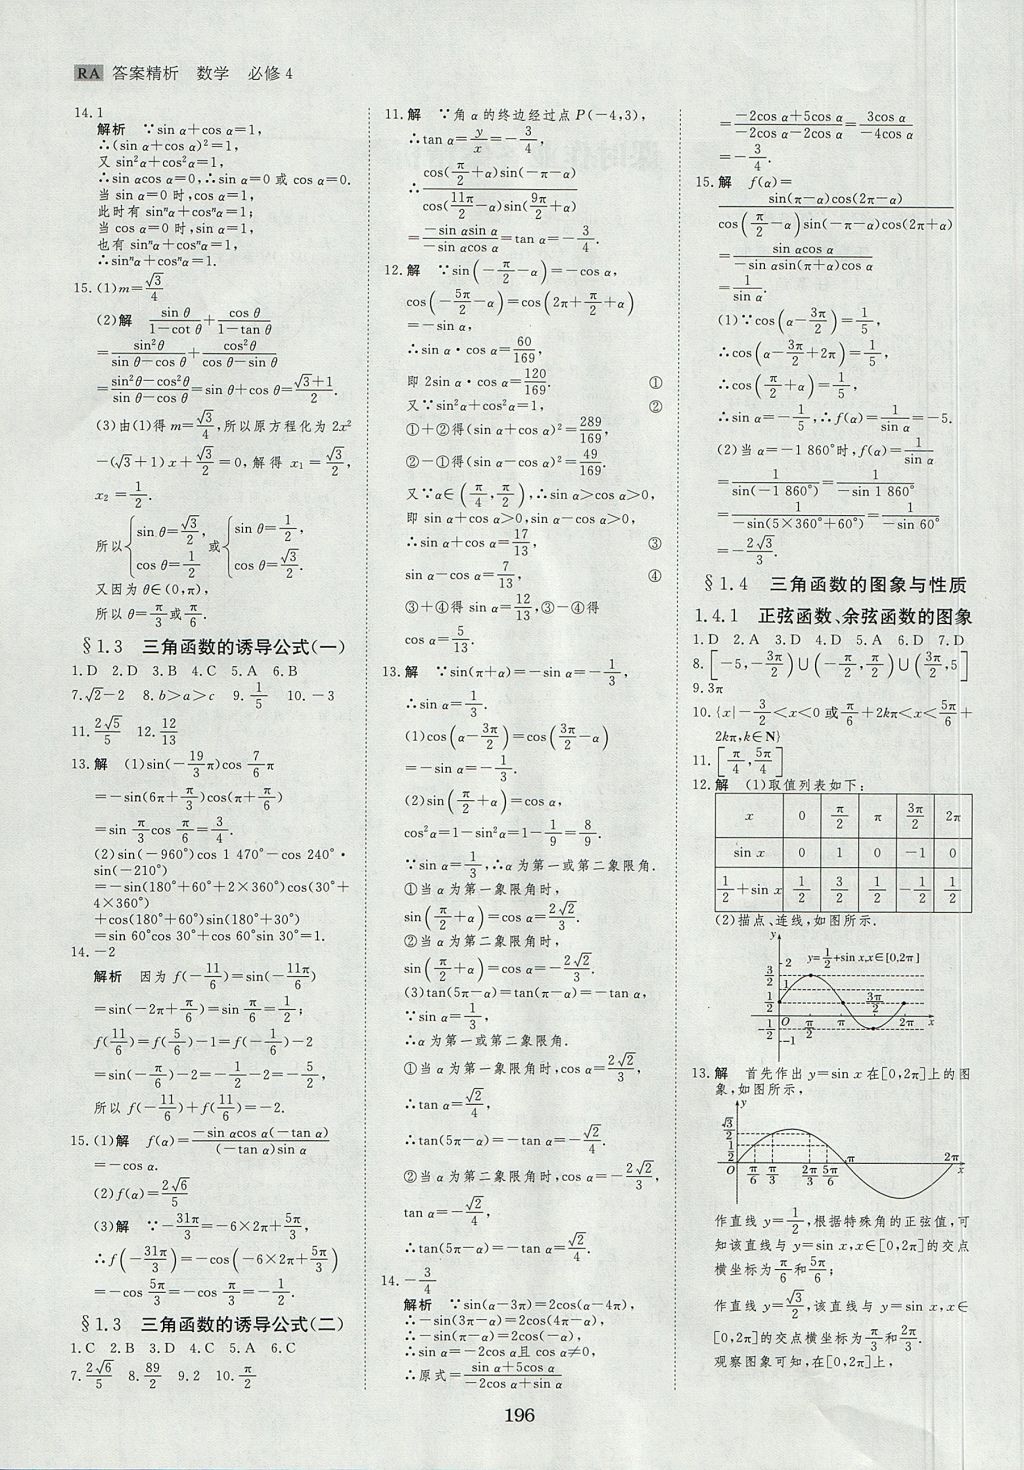 RA 答案精析 数学 必修4
14.1
解析 ∵sin α+cos α=1,
∴(sin α+cos α)²=1,
又 sin²α+cos²α=1,
∴sin αcos α=0,∴sin α=0 或 cos α=0.
当 sin α=0 时,cos α=1,
此时有 sinⁿα+cosⁿα=1;
当 cos α=0 时,sin α=1,
也有 sinⁿα+cosⁿα=1.
∴sinⁿα+cosⁿα=1.
15.(1)m=√3/4
(2)解 sin θ/(1-cot θ)+cos θ/(1-tan θ)
=sin²θ/(sin θ-cos θ)+cos²θ/(cos θ-sin θ)
=(sin²θ-cos²θ)/(sin θ-cos θ)=sin θ+cos θ=(√3+1)/2.
(3)由(1)得 m=√3/4,所以原方程化为 2x²
-(√3+1)x+√3/2=0,解得 x₁=√3/2,
x₂=1/2.
所以{sin θ=√3/2, cos θ=1/2 或{sin θ=1/2, cos θ=√3/2.
又因为 θ∈(0,π),
所以 θ=π/3或π/6.
§1.3 三角函数的诱导公式(一)
1.D 2.D 3.B 4.C 5.A 6.B
7.√2-2 8.b>a>c 9.1/5 10.-3
11.2√5/5 12.12/13
13.解 (1)sin(-19/3π)cos 7/6π
=-sin(6π+π/3)cos(π+π/6)
=sin π/3 cos π/6=3/4.
(2)sin(-960°)cos 1 470°-cos 240°·
sin(-210°)
=-sin(180°+60°+2×360°)cos(30°+
4×360°)
+cos(180°+60°)sin(180°+30°)
=sin 60°cos 30°+cos 60°sin 30°=1.
14.-2
解析 因为 f(-11/6)=sin(-11π/6)
=sin(-2π+π/6)=sin π/6=1/2;
f(11/6)=f(5/6)-1=f(-1/6)-2
=sin(-π/6)-2=-1/2-2=-5/2,
所以 f(-11/6)+f(11/6)=-2.
15.(1)解 f(α)=-sin αcos α(-tan α)/(-tan α)sin α
=-cos α.
(2)f(α)=2√6/5
(3)解 ∵-31π/3=-6×2π+5π/3,
∴f(-31π/3)=-cos(-6×2π+5π/3)
=-cos 5π/3=-cos π/3=-1/2.
§1.3 三角函数的诱导公式(二)
1.C 2.B 3.D 4.C 5.A 6.C
7.2√6/5 8.89/2 9.2 10.π/π
11.解 ∵角 α 的终边经过点 P(-4,3),
∴tan α=y/x=-3/4,
∴cos(π/2+α)sin(-π-α)/cos(11π/2-α)sin(9π/2+α)
=-sin αsin α/-sin αcos α=tan α=-3/4.
12.解 ∵sin(-π/2-α)=-cos α,
cos(-5π/2-α)=cos(2π+π/2+α)
=-sin α,
∴sin α·cos α=60/169,
即 2sin α·cos α=120/169. ①
又∵sin²α+cos²α=1, ②
①+②得(sin α+cos α)²=289/169,
②-①得(sin α-cos α)²=49/169.
又∵α∈(π/4,π/2),∴sin α>cos α>0,
即 sin α+cos α>0,sin α-cos α>0,
∴sin α+cos α=17/13, ③
sin α-cos α=7/13, ④
③+④得 sin α=12/13,③-④得
cos α=5/13.
13.解 ∵sin(π+α)=-sin α=-1/3,
∴sin α=1/3.
(1)cos(α-3π/2)=cos(3π/2-α)
=-sin α=-1/3.
(2)sin(π/2+α)=cos α,
cos²α=1-sin²α=1-1/9=8/9.
∵sin α=1/3,∴α 为第一或第二象限角.
①当 α 为第一象限角时,
sin(π/2+α)=cos α=2√2/3.
②当 α 为第二象限角时,
sin(π/2+α)=cos α=-2√2/3.
(3)tan(5π-α)=tan(π-α)=-tan α,
∵sin α=1/3,
∴α 为第一或第二象限角.
①当 α 为第一象限角时,cos α=2√2/3,
∴tan α=√2/4,
∴tan(5π-α)=-tan α=-√2/4.
②当 α 为第二象限角时,cos α=-2√2/3,
tan α=-√2/4,
∴tan(5π-α)=-tan α=√2/4.
14.-3/4
解析 ∵sin(α-3π)=2cos(α-4π),
∴-sin(3π-α)=2cos(4π-α),
∴-sin(π-α)=2cos(-α),
∴sin α=-2cos α且 cos α≠0,
∴原式=(sin α+5cos α)/(-2cos α+sin α)
=(-2cos α+5cos α)/(-2cos α-2cos α)=3cos α/-4cos α
=-3/4.
15.解 f(α)=
sin(π-α)cos(2π-α)/cos(π/2-α)sin(-π-α)cos(2π+α)
=sin αcos α/-sin αsin(π+α)cos α
=1/sin α.
(1)∵cos(α-3π/2)=1/5,
∴cos(α-3π/2+2π)=1/5,
∴cos(π/2+α)=1/5,
∴sin α=-1/5,∴f(α)=1/sin α=-5.
(2)当 α=-1 860°时,f(α)=1/sin α
=1/sin(-1 860°)=1/-sin 1 860°
=1/-sin(5×360°+60°)=1/-sin 60°
=-2√3/3.
§1.4 三角函数的图象与性质
1.4.1 正弦函数、余弦函数的图象
1.D 2.A 3.D 4.D 5.A 6.D 7.D
8.[-5,-3π/2)∪(-π/2,π/2)∪(3π/2,5]
9.3π
10.{x|-3/2<x<0 或π/6+2kπ<x<5π/6+
2kπ,k∈N}
11.[π/4,5π/4]
12.解 (1)取值列表如下:
x 0 π/2 π 3π/2 2π
sin x 0 1 0 -1 0
1/2+sin x 1/2 3/2 1/2 -1/2 1/2
(2)描点、连线,如图所示.
y 2 y=1/2+sin x,x∈[0,2π]
3/2 1 1/2 3π/2
O π/2 π 2π x
-1/2 -1
13.解 首先作出 y=sin x 在[0,2π]上的图
象,如图所示,
y
√3/2
1/2 2π
O π/6 π/3 2π/3 5π/6 π x
作直线 y=1/2,根据特殊角的正弦值,可
知该直线与 y=sin x,x∈[0,2π]的交点
横坐标为π/6和5π/6;
作直线 y=√3/2,该直线与 y=sin x,x∈
[0,2π]的交点横坐标为π/3和2π/3.
观察图象可知,在[0,2π]上,
196